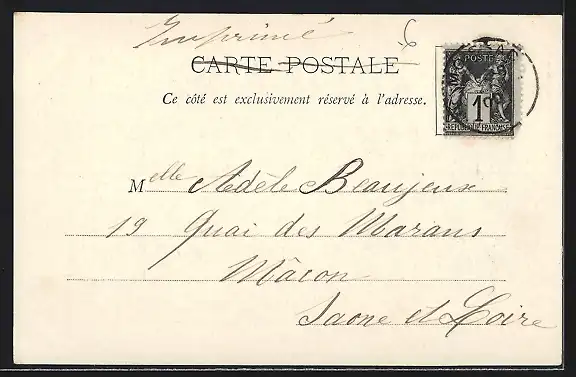 Imprimé
CARTE POSTALE
Ce côté est exclusivement réservé à l'adresse.
POSTES
1c
REPUBLIQUE FRANÇAISE
Melle Adèle Beaujeux
19 Quai des Marans
Mâcon
Saone et Loire